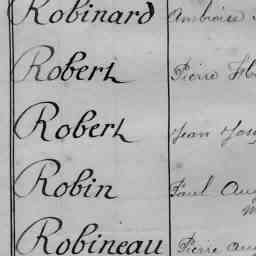 Robinard Ambroise
Robert Pierre
Robert Jean
Robin Paul
Robineau Pierre